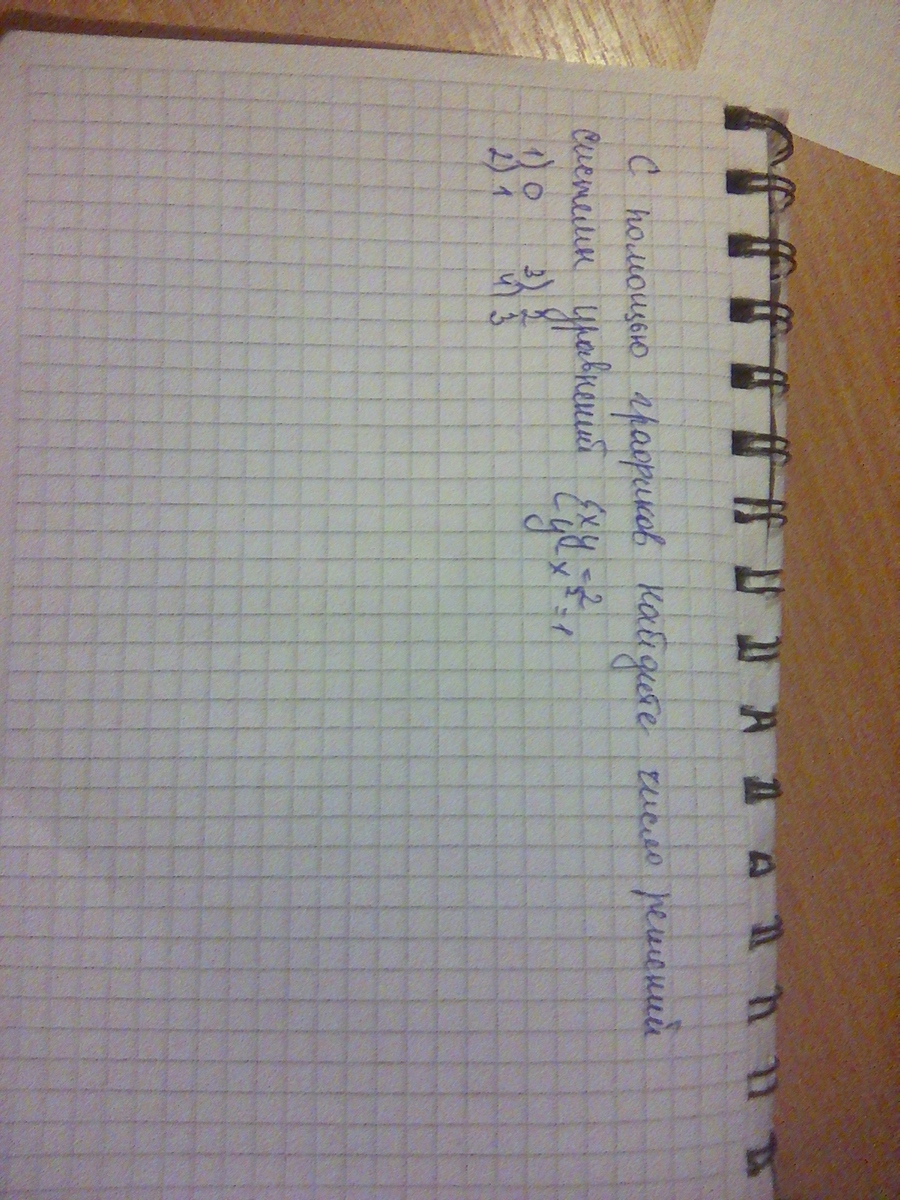 С помощью графиков найдите число решений
системы уравнений { xy = 2
{ y - x² = 1
1) 0 3) 2
2) 1 4) 3